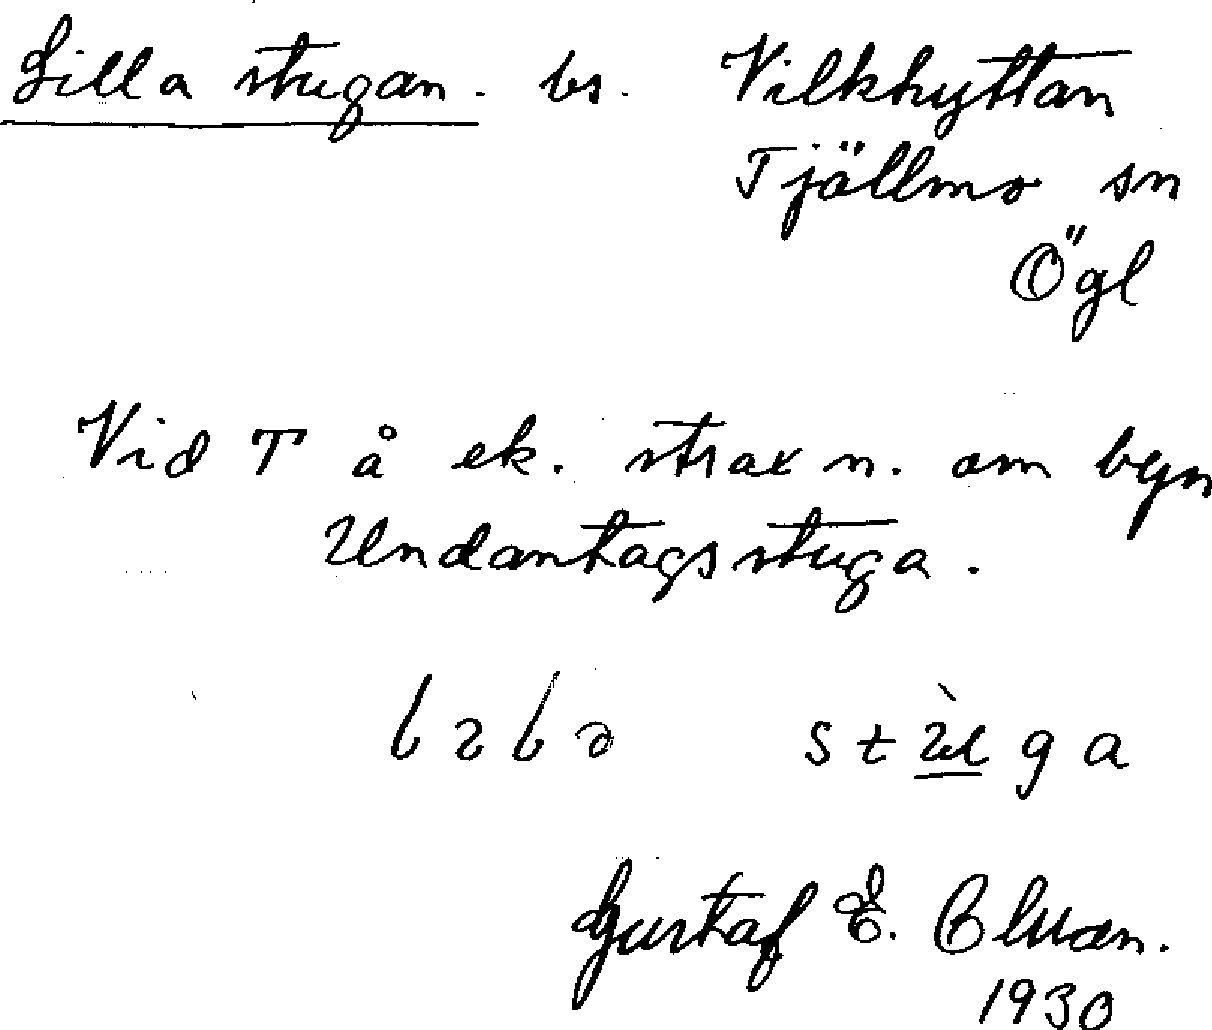 Lilla stugan. bs. Vilkhyttan
Tjällmo sn
Ögl
Vid T å ek. strax n. om byn
Undantagsstuga.
Gustaf E.
1930